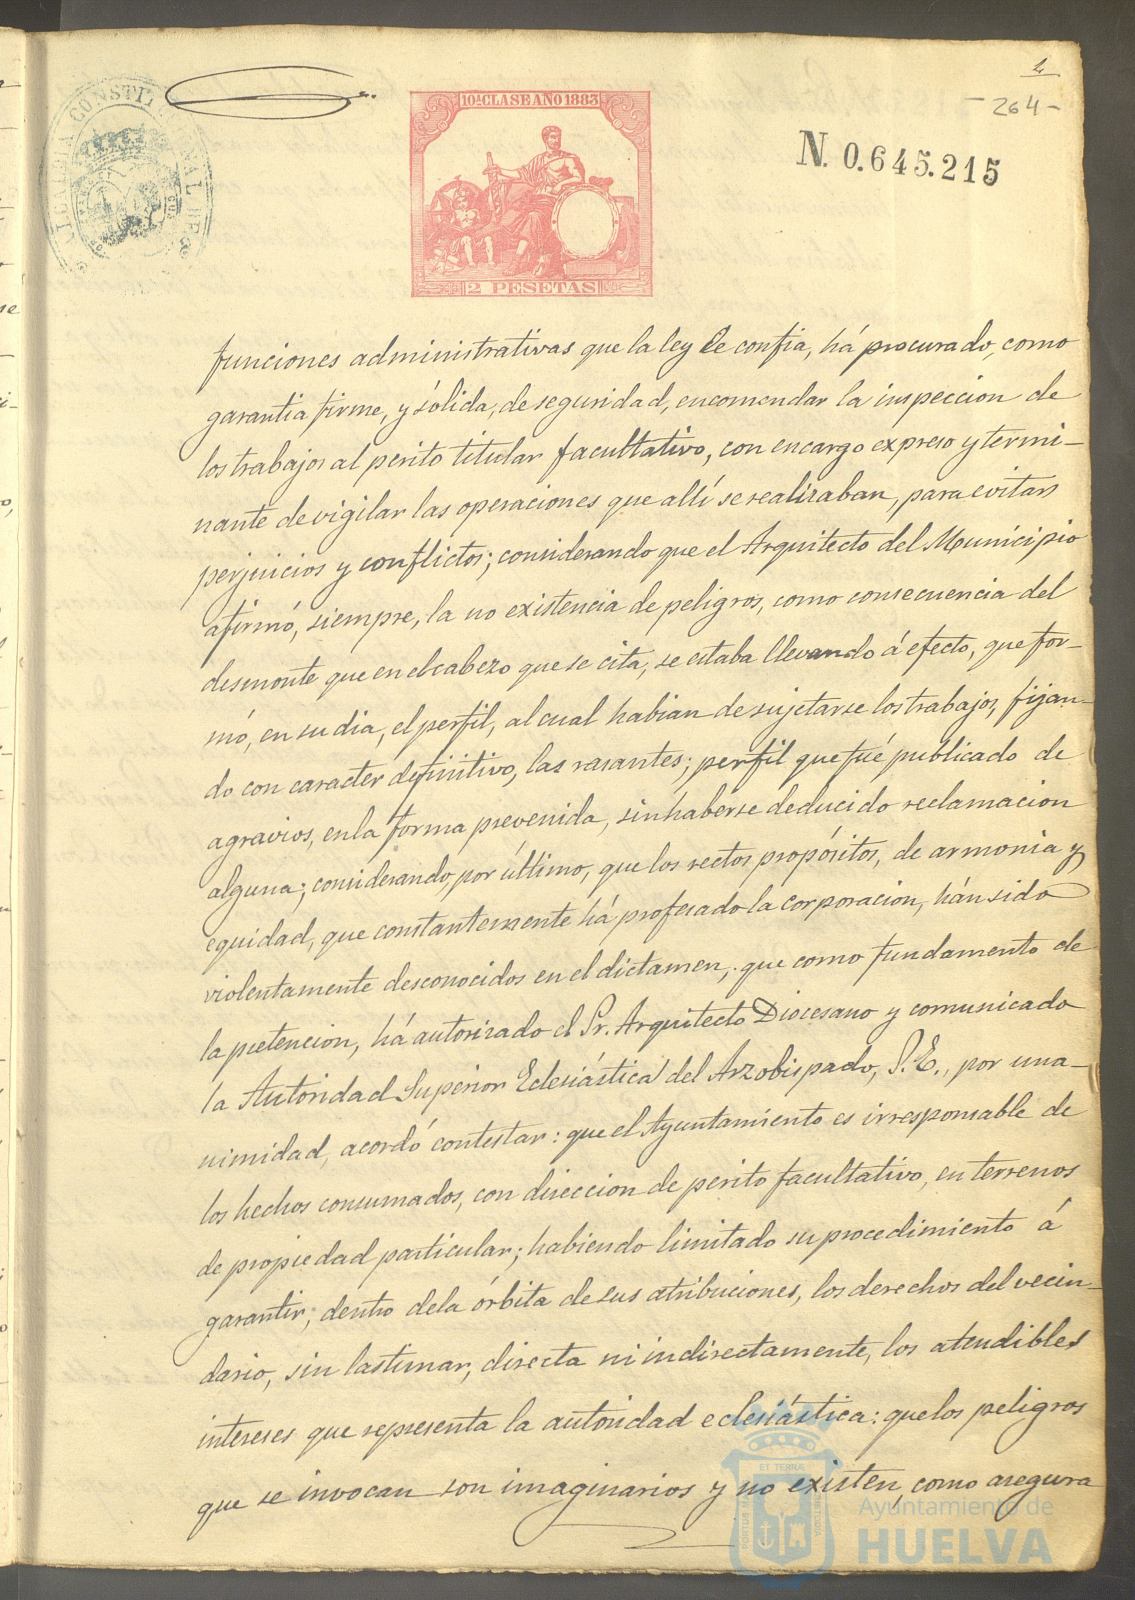 1
- 264 -
ALCALDIA CONSTITUCIONAL DE
10ª CLASE AÑO 1883
2 PESETAS
N. 0.645.215
funciones administrativas que la ley le confia, há procurado, como
garantia firme, y sólida, de seguridad, encomendar la inspeccion de
los trabajos al perito titular facultativo, con encargo expreso y termi-
nante de vigilar las operaciones que allí se realizaban, para evitar
perjuicios y conflictos; considerando que el Arquitecto del Municipio
afirmó, siempre, la no existencia de peligros, como consecuencia del
desmonte que en el cabezo que se cita, se estaba llevando á efecto, que for-
mó, en su dia, el perfil, al cual habian de sujetarse los trabajos, fijan-
do con caracter definitivo, las rasantes; perfil que fué publicado de
agravios, en la forma prevenida, sin haberse deducido reclamacion
alguna; considerando, por último, que los rectos propósitos, de armonia y
equidad, que constantemente há profesado la corporacion, hán sido
violentamente desconocidos en el dictamen, que como fundamento de
la pretencion, há autorizado el Sr. Arquitecto Diocesano y comunicado
la Autoridad Superior Eclesiástica del Arzobispado, S. E., por una-
nimidad, acordó contestar: que el Ayuntamiento es irresponsable de
los hechos consumados, con direccion de perito facultativo, en terrenos
de propiedad particular; habiendo limitado su procedimiento á
garantir, dentro de la órbita de sus atribuciones, los derechos del vecin-
dario, sin lastimar, directa ni indirectamente, los atendibles
intereses que representa la autoridad eclesiástica: que los peligros
que se invocan son imaginarios y no existen, como asegura
Ayuntamiento de
HUELVA